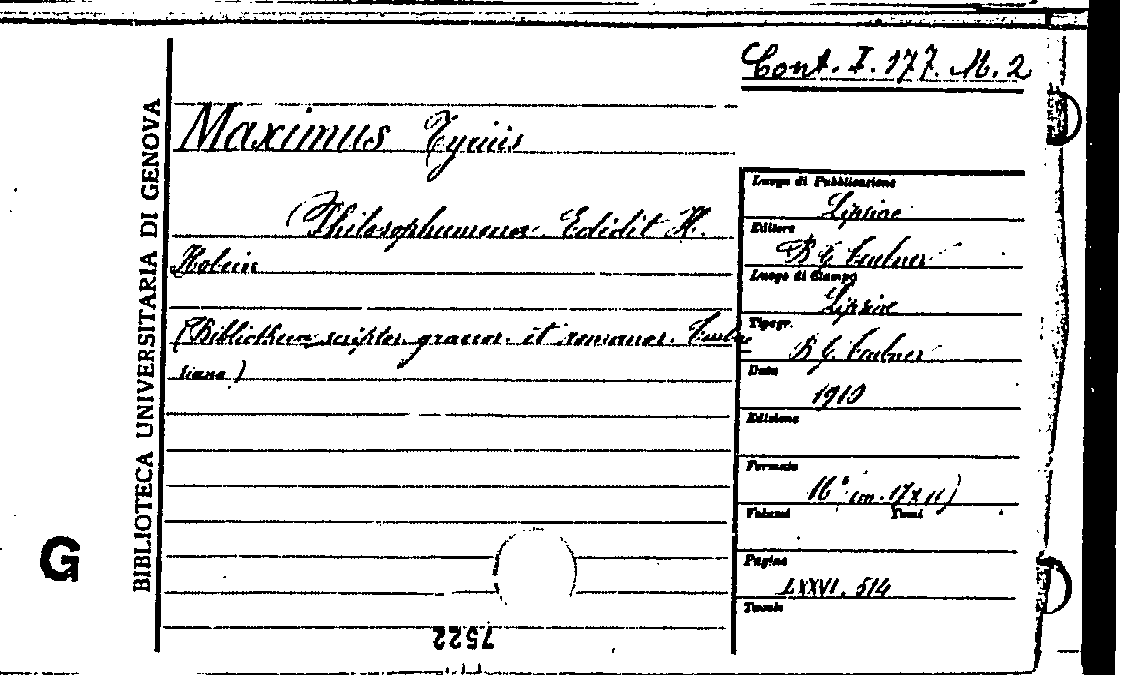 Cont. I. 177. M. 2
BIBLIOTECA UNIVERSITARIA DI GENOVA
Maximus Tyrius
Philosophumena. Edidit H.
Hobein
(Bibliotheca scriptor. graecor. et romanor. Teubne
riana)
Luogo di Pubblicazione
Lipsiae
Editore
B G Teubner
Luogo di Stampa
Lipsiae
Tipogr.
B G Teubner
Data
1910
Edizione
Formato
16° (cm. 17x11)
Volumi Tomi
Pagine
LXXVI, 514
Tavole
G
7522